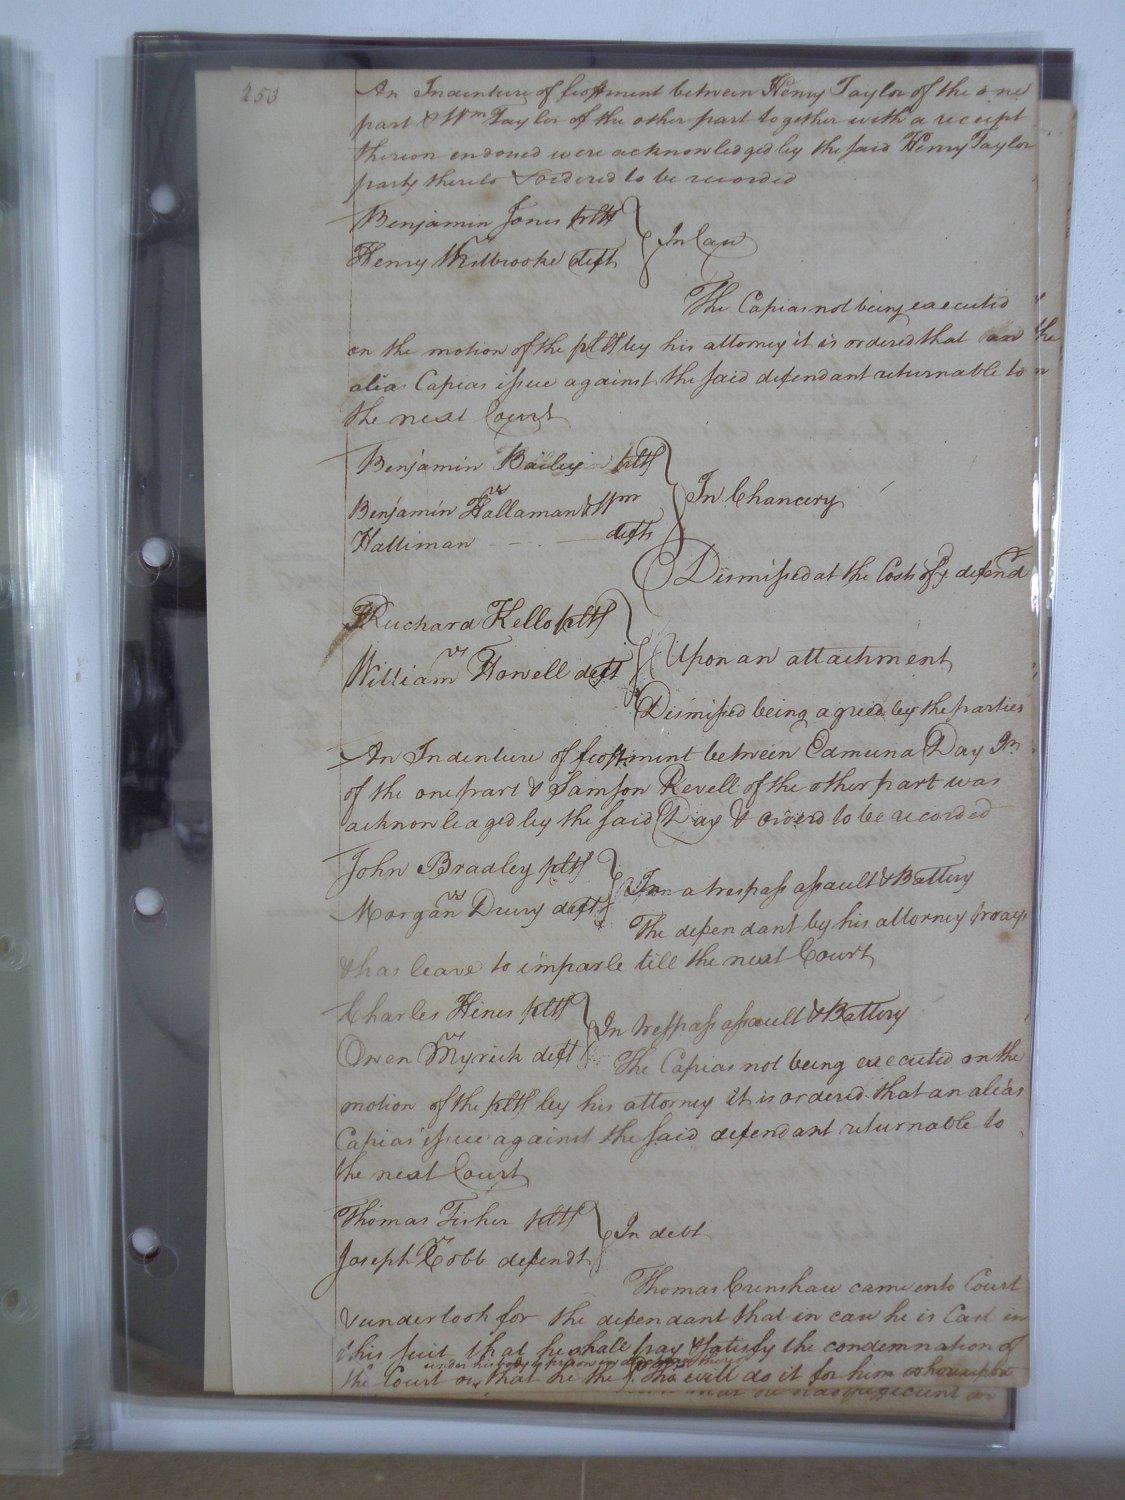 253
An Indenture of feoffment between Henry Taylor of the one
part & Wm Taylor of the other part together with a receipt
thereon endorsed were acknowledged by the said Henry Taylor
party thereto & ordered to be recorded
Benjamin Jones pltf
vs
In Case
Henry deft
The Capias not being executed
on the motion of the pltf by his attorney it is ordered that an
alias Capias issue against the said defendant returnable to
the next Court
Benjamin Bailey pltf
vs
In Chancery
Benjamin Hallaman & Wm
Halliman defts
Dismissed at the Costs of defend
Richard Kello pltf
vs
Upon an attachment
William Howell deft
Dismissed being agreed by the parties
An Indenture of feoffment between Edmund Day Jr
of the one part & Samson Revell of the other part was
acknowledged by the said Day & ordered to be recorded
John Bradley pltf
vs
In a trespass assault & Battery
Morgan Drury deft
The defendant by his attorney prays
& has leave to imparle till the next Court
Charles Hines pltf
vs
In trespass assault & Battery
Owen Myrick deft
The Capias not being executed on the
motion of the pltf by his attorney it is ordered that an alias
Capias issue against the said defendant returnable to
the next Court
Thomas Fisher pltf
vs
In debt
Joseph Cobb defendt
Thomas Crenshaw came into Court
& undertook for the defendant that in case he is Cast in
this suit that he shall pay & satisfy the condemnation of
under his body to prison in
the Court or that he the sd Tho will do it for him whereupon